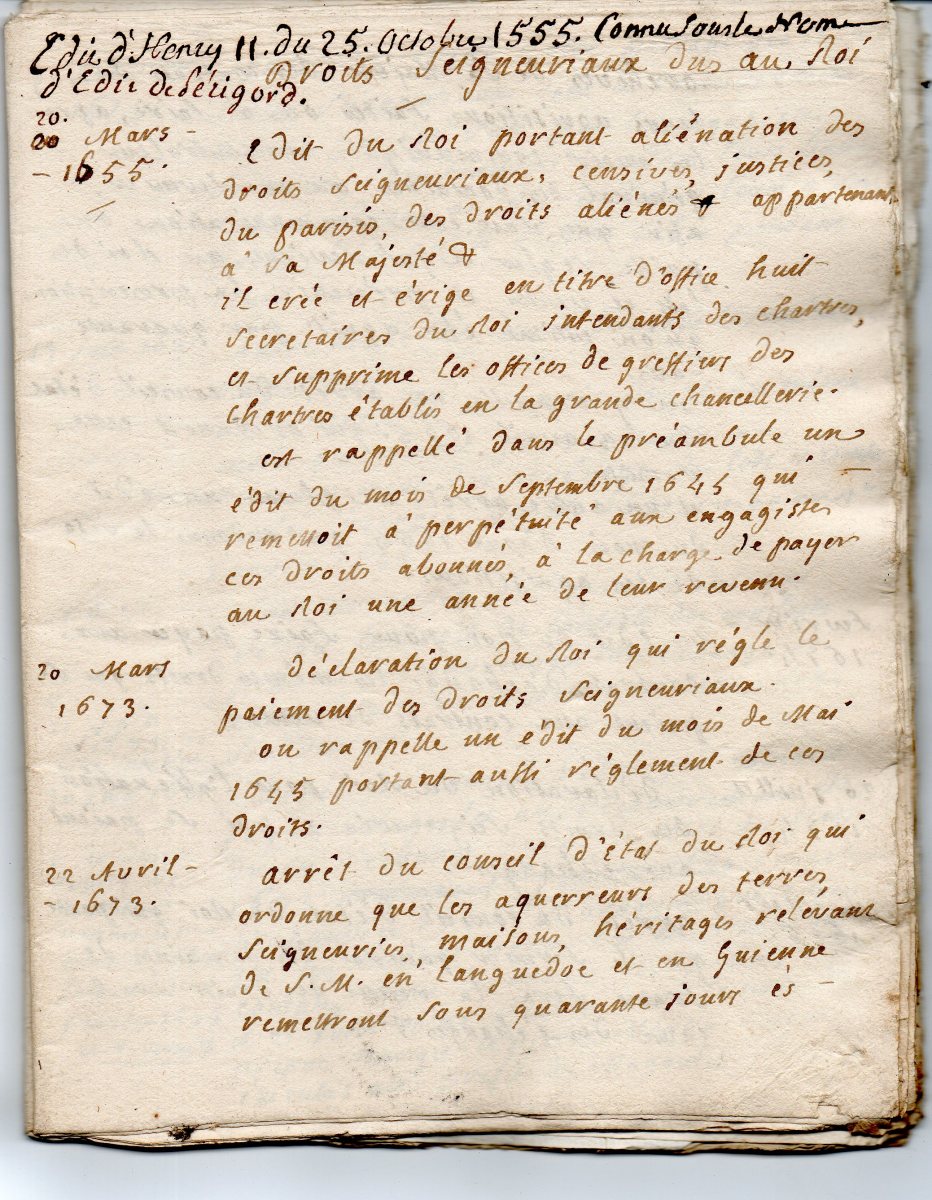 Edit d'Henry II. du 25. Octobre 1555. Connu sous le Nome
d'Edit de Périgord.
Droits Seigneuriaux dus au Roi
20.
20 Mars
1655.
Edit du Roi portant aliénation des
droits seigneuriaux, censives, justices,
du parisis, des droits aliénés & appartenant
à sa Majesté &
il crée et érige en titre d'office huit
secretaires du Roi intendants des chartres,
et supprime les offices de greffiers des
Chartres établis en la grande chancellerie.
est rappellé dans le préambule un
édit du mois de Septembre 1645 qui
remettoit à perpétuité aux engagistes
ces droits abonnés, à la charge de payer
au Roi une année de leur revenu.
20 Mars
1673.
déclaration du Roi qui régle le
paiement des droits Seigneuriaux.
on rappelle un édit du mois de Mai
1645 portant aussi réglement de ces
droits.
22 Avril
1673.
arrêt du conseil d'état du Roi qui
ordonne que les aquerreurs des terres,
Seigneuries, maisons, héritages relévant
de S.M. en Languedoc et en Guienne
remettront sous quarante jours ès